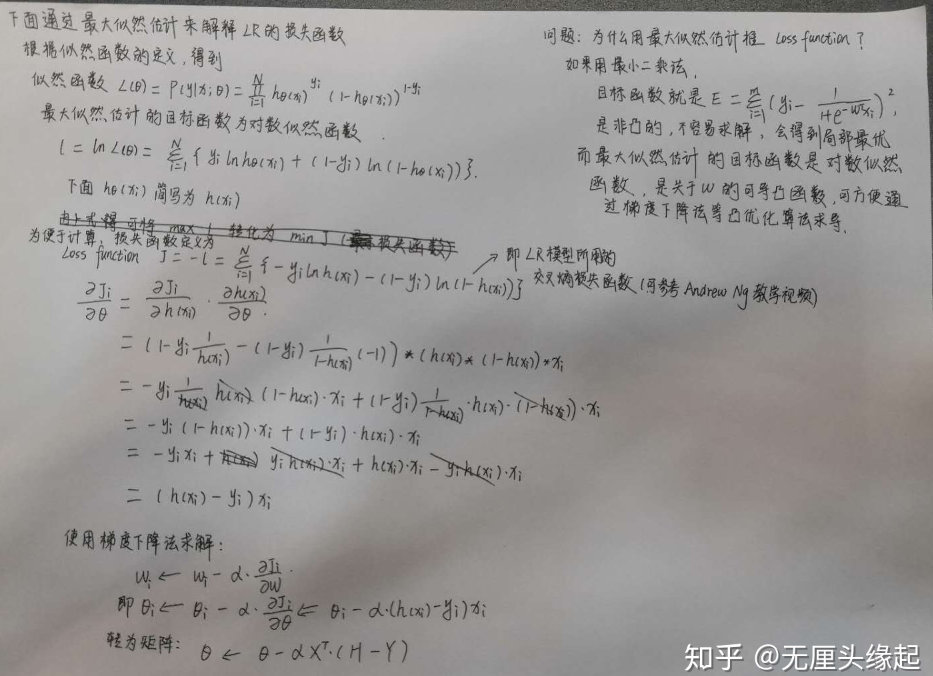 下面通过最大似然估计来解释LR的损失函数
根据似然函数的定义,得到
似然函数 L(θ) = P(y|x;θ) = ∏_{i=1}^{N} hθ(xi)^{yi} (1-hθ(xi))^{1-yi}
最大似然估计的目标函数为对数似然函数.
l = ln L(θ) = ∑_{i=1}^{N} { yi ln hθ(xi) + (1-yi) ln (1-hθ(xi)) }.
下面 hθ(xi) 简写为 h(xi)
为便于计算,损失函数定义为
Loss function J = -l = ∑_{i=1}^{N} { -yi ln h(xi) - (1-yi) ln (1-h(xi)) }
→ 即LR模型所用的
交叉熵损失函数(可参考 Andrew Ng 教学视频)
∂Ji/∂θ = ∂Ji/∂h(xi) · ∂h(xi)/∂θ.
= (1-yi 1/h(xi) - (1-yi) 1/(1-h(xi)) (-1)) * (h(xi) * (1-h(xi)) * xi
= -yi 1/h(xi) h(xi) (1-h(xi)·xi + (1-yi) 1/(1-h(xi)) · h(xi) · (1-h(xi)) · xi
= -yi (1-h(xi))·xi + (1-yi)·h(xi)·xi
= -yi xi + yi h(xi)·xi + h(xi)·xi - yi h(xi)·xi
= (h(xi) - yi) xi
使用梯度下降法求解:
wi ← wi - α·∂Ji/∂w.
即 θi ← θi - α·∂Ji/∂θ ← θi - α·(h(xi)-yi) xi
转为矩阵: θ ← θ - αX^T·(H-Y)
问题:为什么用最大似然估计推 Loss function?
如果用最小二乘法,
目标函数就是 E = ∑_{i=1}^{m} (yi - 1/(1+e^{-w^T xi}))^2,
是非凸的,不容易求解,会得到局部最优
而最大似然估计的目标函数是对数似然
函数,是关于W的可导凸函数,可方便通
过梯度下降法等凸优化算法求导.
知乎 @无厘头缘起